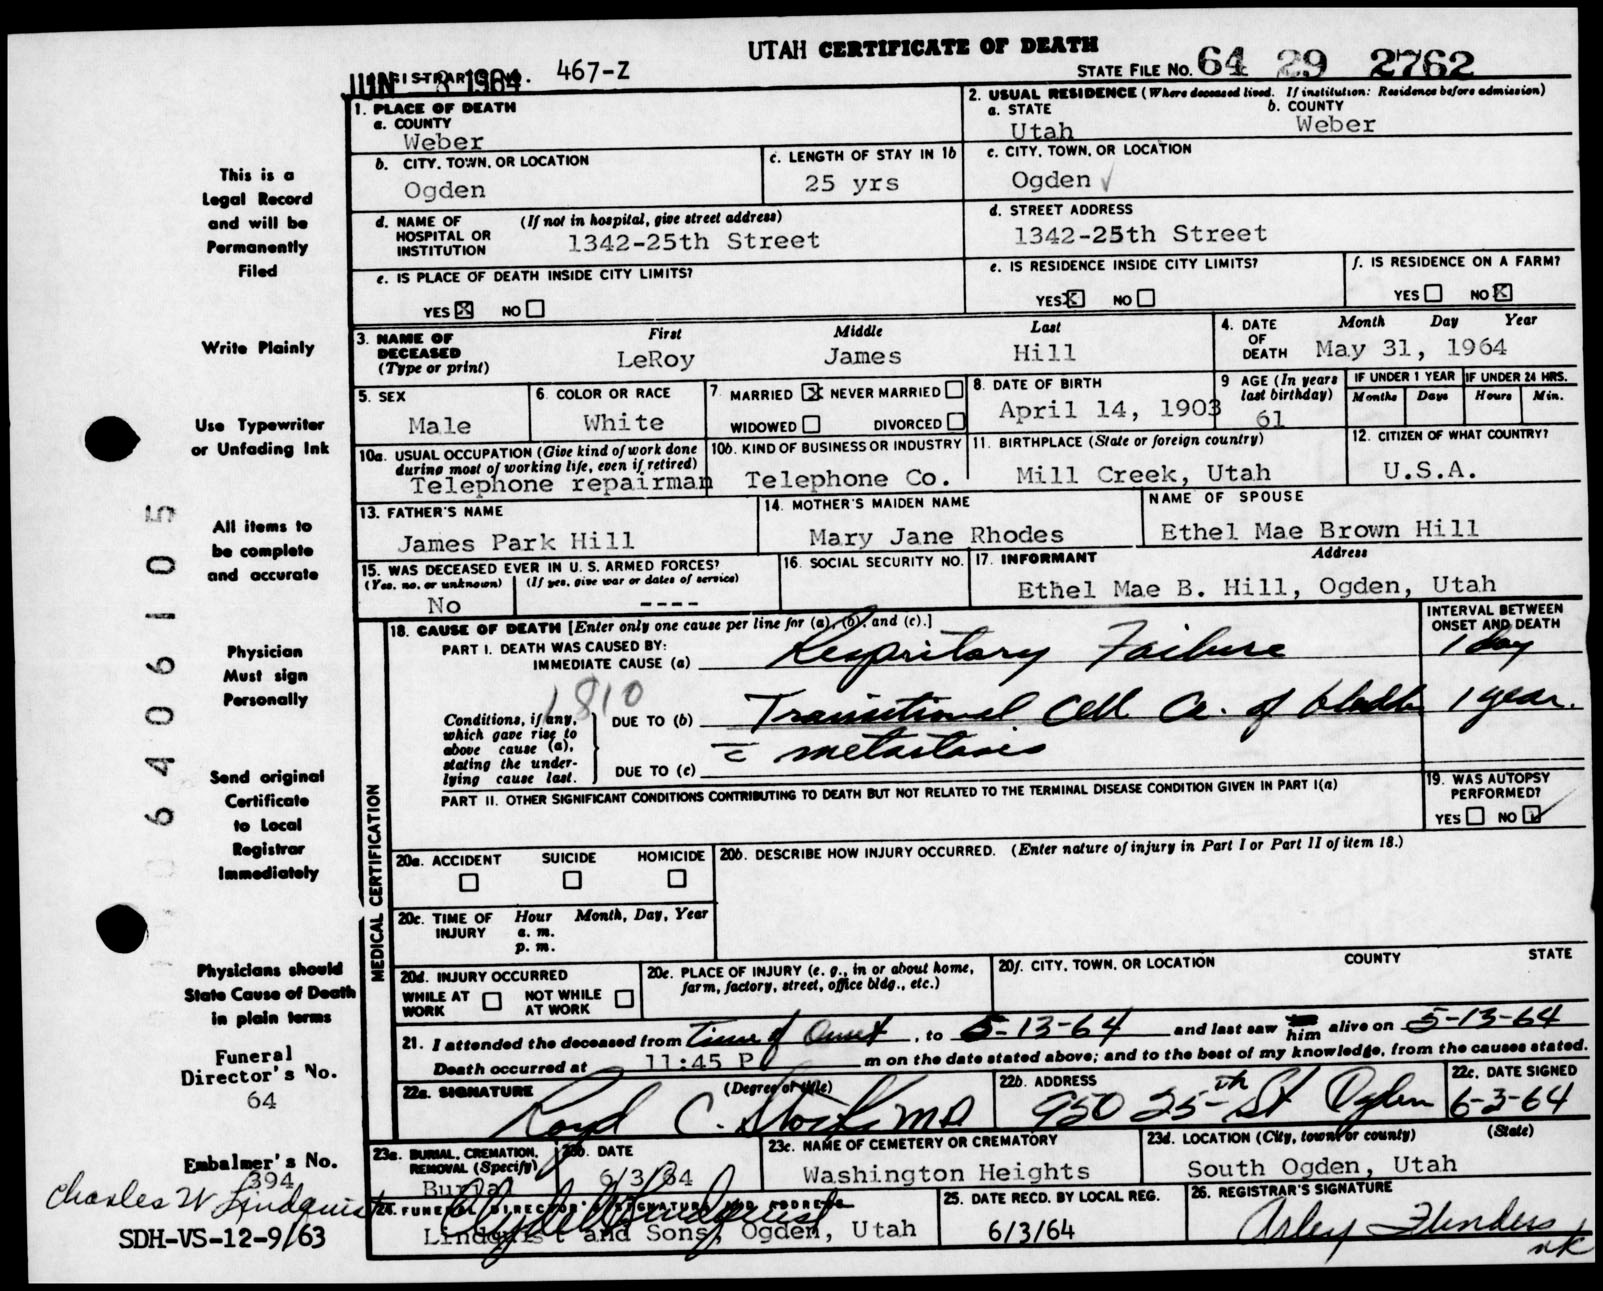 UTAH CERTIFICATE OF DEATH
JUN - 8 1964 467-Z
STATE FILE NO. 64 29 2762
1. PLACE OF DEATH
a. COUNTY
Weber
2. USUAL RESIDENCE (Where deceased lived. If institution: Residence before admission)
a. STATE b. COUNTY
Utah Weber
b. CITY, TOWN, OR LOCATION
Ogden
c. LENGTH OF STAY IN 1b
25 yrs
c. CITY, TOWN, OR LOCATION
Ogden
d. NAME OF HOSPITAL OR INSTITUTION (If not in hospital, give street address)
1342-25th Street
d. STREET ADDRESS
1342-25th Street
e. IS PLACE OF DEATH INSIDE CITY LIMITS?
YES ☒ NO ☐
e. IS RESIDENCE INSIDE CITY LIMITS?
YES ☒ NO ☐
f. IS RESIDENCE ON A FARM?
YES ☐ NO ☒
3. NAME OF DECEASED (Type or print)
First Middle Last
LeRoy James Hill
4. DATE OF DEATH
Month Day Year
May 31, 1964
5. SEX
Male
6. COLOR OR RACE
White
7. MARRIED ☒ NEVER MARRIED ☐
WIDOWED ☐ DIVORCED ☐
8. DATE OF BIRTH
April 14, 1903
9 AGE (In years last birthday)
61
IF UNDER 1 YEAR
Months Days
IF UNDER 24 HRS.
Hours Min.
10a. USUAL OCCUPATION (Give kind of work done during most of working life, even if retired)
Telephone repairman
10b. KIND OF BUSINESS OR INDUSTRY
Telephone Co.
11. BIRTHPLACE (State or foreign country)
Mill Creek, Utah
12. CITIZEN OF WHAT COUNTRY?
U.S.A.
13. FATHER'S NAME
James Park Hill
14. MOTHER'S MAIDEN NAME
Mary Jane Rhodes
NAME OF SPOUSE
Ethel Mae Brown Hill
15. WAS DECEASED EVER IN U. S. ARMED FORCES?
(Yes, no, or unknown) (If yes, give war or dates of service)
No ----
16. SOCIAL SECURITY NO.
17. INFORMANT Address
Ethel Mae B. Hill, Ogden, Utah
18. CAUSE OF DEATH [Enter only one cause per line for (a), (b), and (c).]
INTERVAL BETWEEN ONSET AND DEATH
PART I. DEATH WAS CAUSED BY:
IMMEDIATE CAUSE (a) Respritary Failure 1 day
1810
Conditions, if any, which gave rise to above cause (a), stating the underlying cause last.
DUE TO (b) Transitional Cell Ca. of bladder 1 year.
c̄ metastasis
DUE TO (c)
PART II. OTHER SIGNIFICANT CONDITIONS CONTRIBUTING TO DEATH BUT NOT RELATED TO THE TERMINAL DISEASE CONDITION GIVEN IN PART I(a)
19. WAS AUTOPSY PERFORMED?
YES ☐ NO ☑
MEDICAL CERTIFICATION
20a. ACCIDENT SUICIDE HOMICIDE
☐ ☐ ☐
20b. DESCRIBE HOW INJURY OCCURRED. (Enter nature of injury in Part I or Part II of item 18.)
20c. TIME OF INJURY Hour Month, Day, Year
a. m.
p. m.
20d. INJURY OCCURRED
WHILE AT WORK ☐ NOT WHILE AT WORK ☐
20e. PLACE OF INJURY (e. g., in or about home, farm, factory, street, office bldg., etc.)
20f. CITY, TOWN, OR LOCATION COUNTY STATE
21. I attended the deceased from Time of Onset, to 5-13-64 and last saw him alive on 5-13-64
Death occurred at 11:45 P m on the date stated above; and to the best of my knowledge, from the causes stated.
22a. SIGNATURE (Degree or title)
C. MD
22b. ADDRESS
950 25th St Ogden
22c. DATE SIGNED
6-3-64
23a. BURIAL, CREMATION, REMOVAL (Specify)
Burial
23b. DATE
6/3/64
23c. NAME OF CEMETERY OR CREMATORY
Washington Heights
23d. LOCATION (City, town or county) (State)
South Ogden, Utah
24. FUNERAL DIRECTOR'S SIGNATURE AND ADDRESS
Lindquist and Sons, Ogden, Utah
25. DATE RECD. BY LOCAL REG.
6/3/64
26. REGISTRAR'S SIGNATURE
Arley Flinders
nk
This is a
Legal Record
and will be
Permanently
Filed
Write Plainly
Use Typewriter
or Unfading Ink
All items to
be complete
and accurate
Physician
Must sign
Personally
Send original
Certificate
to Local
Registrar
Immediately
Physicians should
State Cause of Death
in plain terms
Funeral
Director's No.
64
Embalmer's No.
394
Charles W Lindquist
SDH-VS-12-9/63
6406105